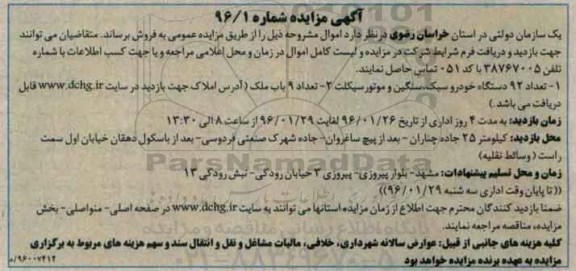 آگهی مزایده شماره ۹۶/۱
یک سازمان دولتی در استان خراسان رضوی در نظر دارد اموال مشروحه ذیل را از طریق مزایده عمومی به فروش برساند. متقاضیان می توانند
جهت بازدید و دریافت فرم شرایط شرکت در مزایده و لیست کامل اموال در زمان و محل اعلامی مراجعه و یا جهت کسب اطلاعات با شماره
تلفن ۳۸۷۶۷۰۰۵ با کد ۰۵۱ تماس حاصل نمایند.
۱- تعداد ۹۲ دستگاه خودرو سبک، سنگین و موتور سیکلت ۲- تعداد ۹ باب ملک ( آدرس املاک جهت بازدید در سایت www.dchg.ir قابل
دریافت می باشد.)
زمان بازدید: به مدت ۴ روز اداری از تاریخ ۹۶/۰۱/۲۶ لغایت ۹۶/۰۱/۲۹ از ساعت ۸ الی ۱۳:۳۰
محل بازدید: کیلومتر ۲۵ جاده چناران - بعد از پیچ ساغروان- جاده شهرک صنعتی فردوسی- بعد از باسکول دهقان خیابان اول سمت
راست ( وسائط نقلیه)
زمان و محل تسلیم پیشنهادات: مشهد- بلوار پیروزی- پیروزی ۳ خیابان رودکی- نبش رودکی ۱۳
((تا پایان وقت اداری سه شنبه ۹۶/۰۱/۲۹))
ضمنا بازدید کنندگان محترم جهت اطلاع از زمان مزایده استانها می توانند به سایت www.dchg.ir در صفحه اصلی- منو اصلی- بخش
مزایده، مناقصه مراجعه نمایند.
کلیه هزینه های جانبی از قبیل: عوارض سالانه شهرداری، خلافی، مالیات مشاغل و نقل و انتقال سند و سهم هزینه های مربوط به برگزاری
مزایده به عهده برنده مزایده خواهد بود
۹۶۰۰۷۴۱۲/م
ParsNamadData